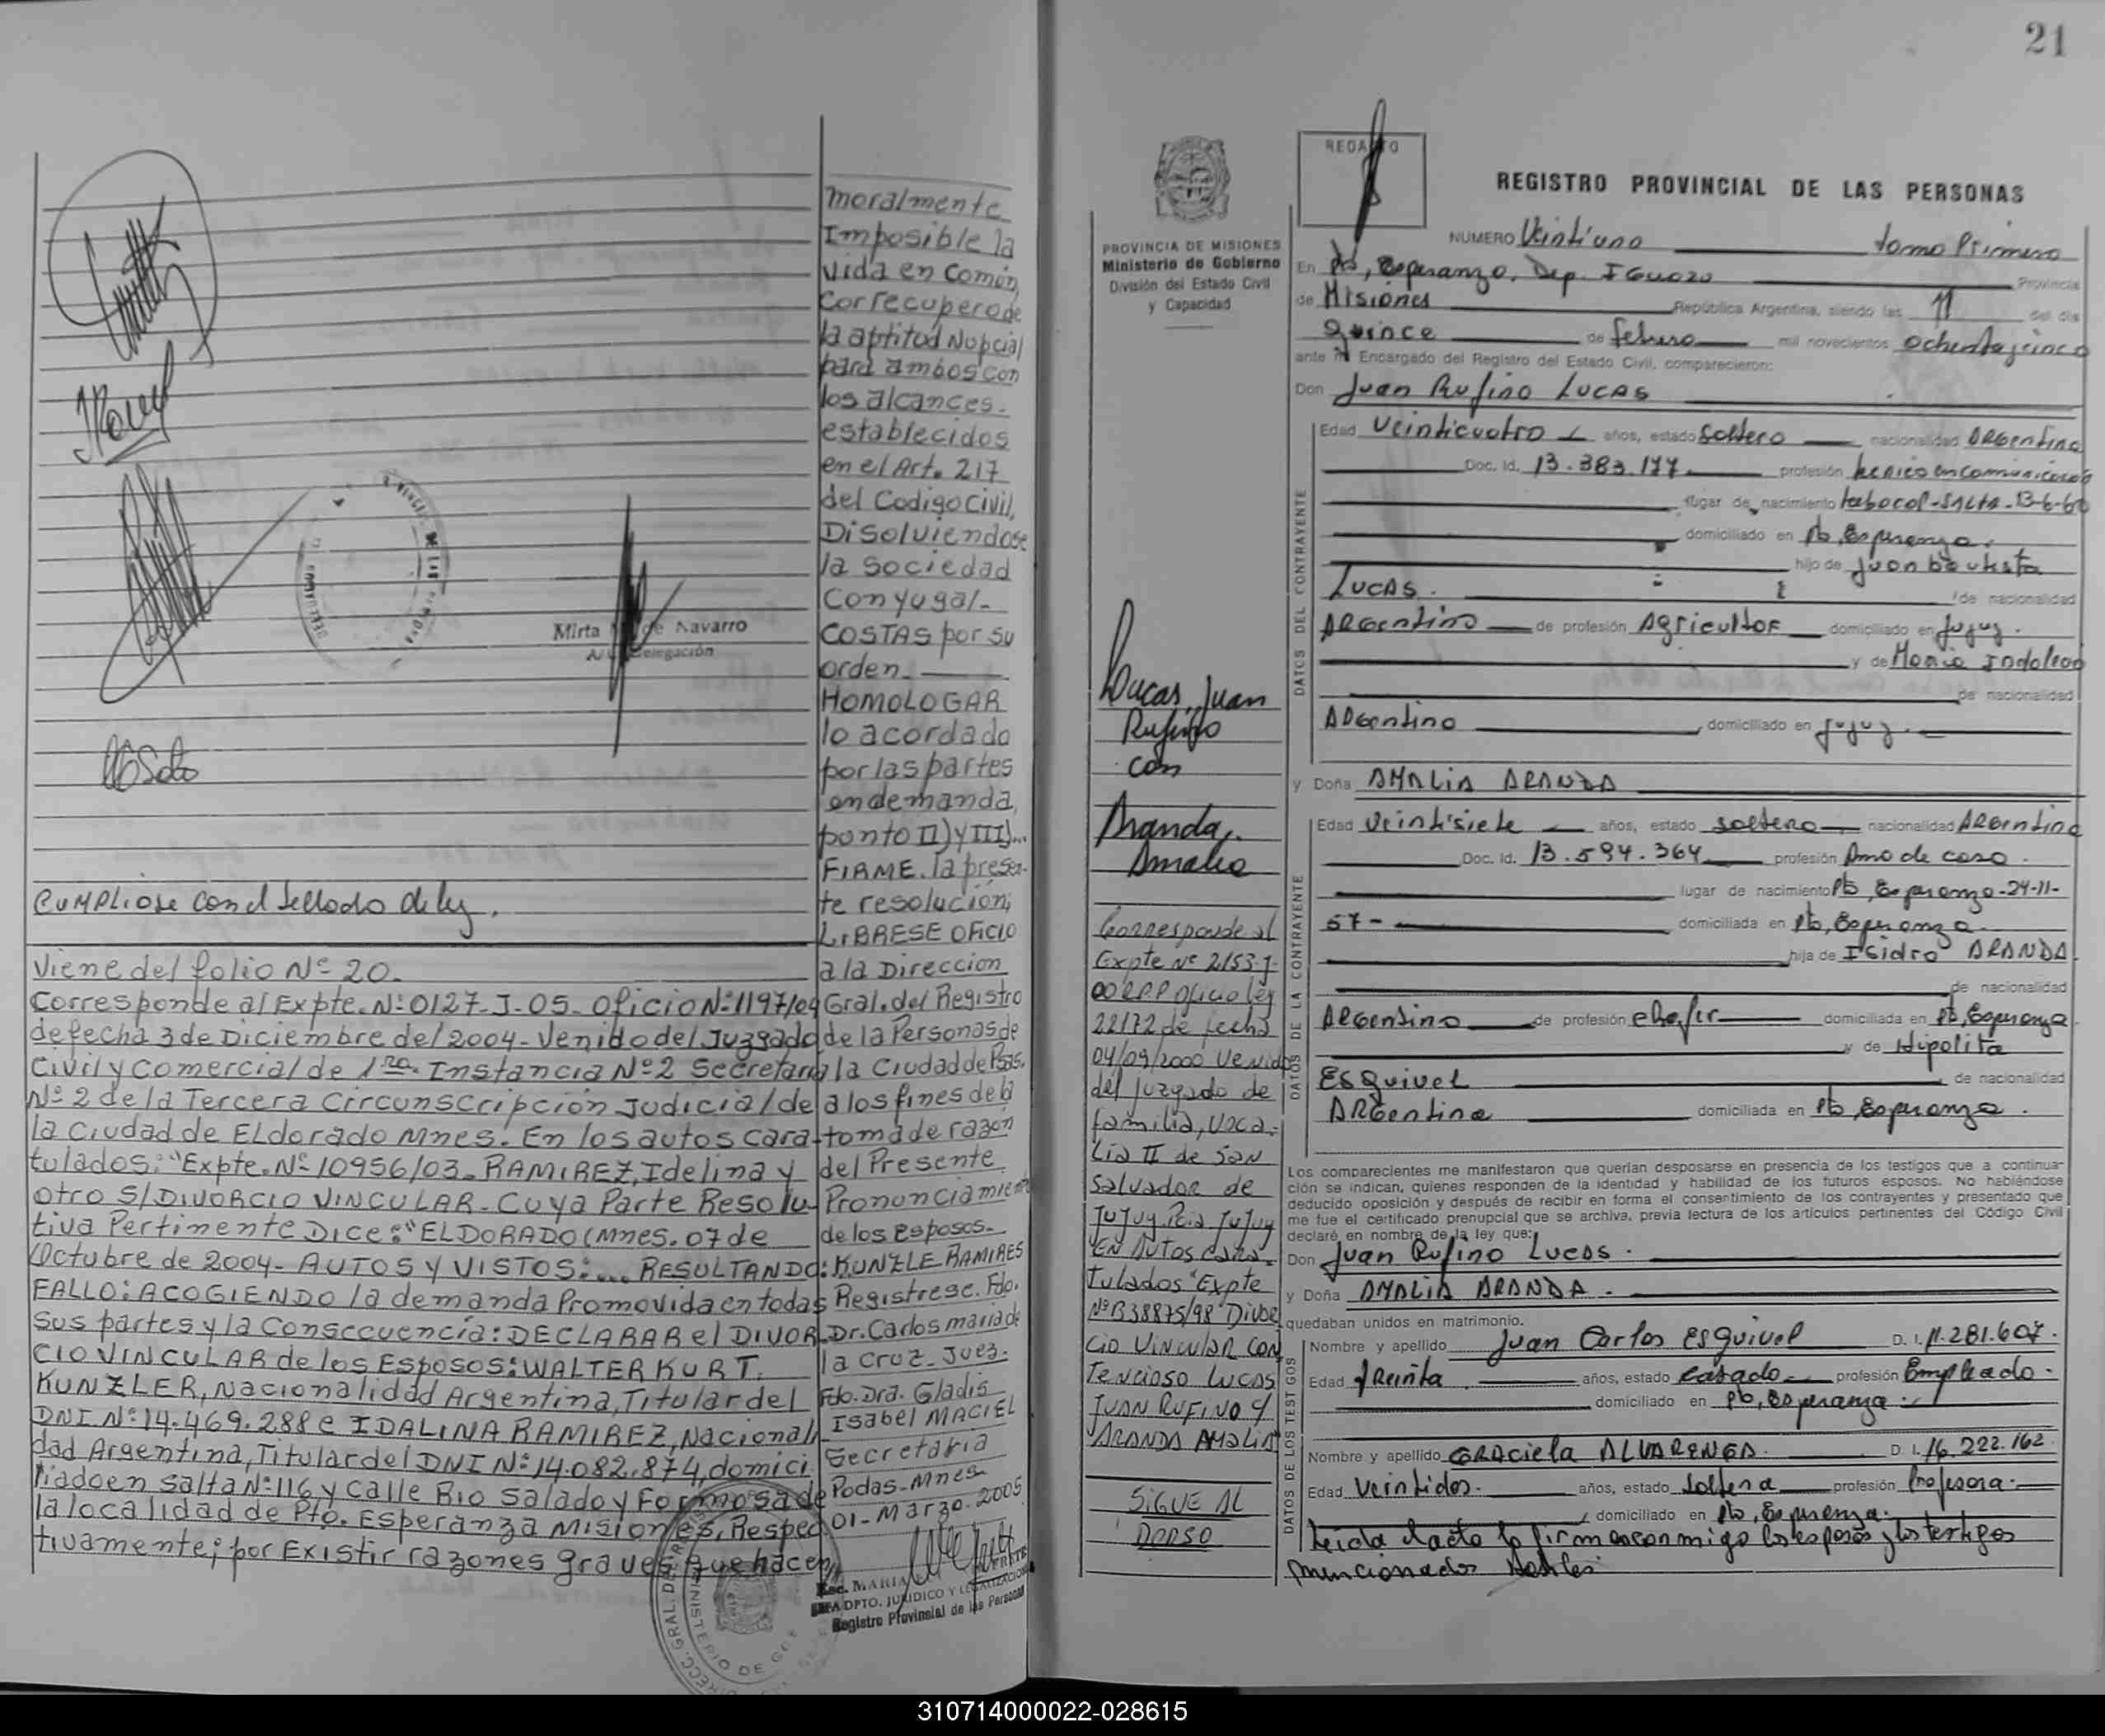 CUMPLiose con el sellado de ley.
Viene del folio Nº 20.
Corresponde al Expte. Nº 0127-J-05. Oficio Nº 1197/04
de fecha 3 de Diciembre del 2004- Venido del Juzgado
Civil y Comercial de 1ra. Instancia Nº 2 Secretaria
Nº 2 de la Tercera Circunscripción Judicial de
la Ciudad de ELdorado Mnes. En los autos cara-
tulados: "Expte. Nº 10956/03- RAMIREZ, Idelina y
otro S/DIVORCIO VINCULAR- Cuya Parte Resolu-
tiva Pertinente Dice: "ELDORADO (Mnes. 07 de
Octubre de 2004- AUTOS y VISTOS:... RESULTANDO:
FALLO: ACOGIENDO la demanda Promovida en todas
Sus partes y la Consecuencia: DECLARAR el DIVOR-
CIO VINCULAR de los Esposos: WALTER KURT.
KUNZLER, Nacionalidad Argentina, Titular del
DNI Nº 14.469.288 e IDALINA RAMIREZ, Nacionali
dad Argentina, Titular del DNI Nº 14.082.874, domici
liado en Salta Nº 116 y calle Rio Salado y Formosa de
la localidad de Pto. Esperanza Misiones, Respec
tivamente; por Existir razones graves que hacen
moralmente
Imposible la
vida en Común,
Con recupero de
la aptitud Nupcial
para ambos con
los alcances.
establecidos
en el Art. 217
del Codigo Civil,
Disolviendose
la sociedad
Conyugal-
COSTAS por su
orden.
HOMOLOGAR
lo acordado
por las partes
en demanda,
ponto II) y III)...
FIRME. la presen-
te resolución;
LIBRESE OFICIO
a la Direccion
Gral. del Registro
de la Personas de
la Ciudad de Psas.
a los fines de la
toma de razón
del Presente
Pronunciamiento
de los esposos-
KUNZLE RAMIRES
Registrese. Fdo.
Dr. Carlos maria de
la Cruz- Juez.
Fdo. Dra. Gladis
Isabel MACIEL
Secretaria
Podas- Mnes
01- Marzo- 2005
Mirta de Navarro
Delegación
Esc. MARIA
DPTO. JURIDICO Y LEGALIZACIONES
Registro Provincial de las Personas
21
PROVINCIA DE MISIONES
Ministerio de Gobierno
División del Estado Civil
y Capacidad
Lucas, Juan
Rufino
con
Aranda,
Amalia
Corresponde al
Expte Nº 2153-J-
00 R.P.P oficio ley
22172 de fecha
04/09/2000 Venido
del Juzgado de
familia, Voca-
lia II de SAN
Salvador de
Jujuy Pcia Jujuy
EN Autos cara-
tulados "Expte
Nº B38875/98 Divor
cio Vincular CON
Tencioso LUCAS
JUAN RUFINO y
ARANDA AMALIA
SIGUE AL
DORSO
REGISTRO PROVINCIAL DE LAS PERSONAS
NUMERO Veintiuno tomo Primero
En Pto, Esperanza, Dep. IGUAZU Provincia
de Misiones República Argentina, siendo las 11 del día
quince de febrero mil novecientos ochenta y cinco
ante mi Encargado del Registro del Estado Civil, comparecieron:
Don Juan Rufino LUCAS
DATOS DEL CONTRAYENTE
Edad Veinticuatro años, estado Soltero nacionalidad ARGentina
Doc. Id. 13.383.177 profesión
lugar de nacimiento tabacal-SALTA-13-6-60
domiciliado en Pto, Esperanza.
hijo de Juan bautista
LUCAS. de nacionalidad
ARGentino de profesión Agricultor domiciliado en Jujuy.
y de
de nacionalidad
ARGentina domiciliado en Jujuy.
y Doña AMALIA ARANDA
DATOS DE LA CONTRAYENTE
Edad Veintisiete años, estado soltera nacionalidad ARGentina
Doc. Id. 13.594.364 profesión Ama de casa.
lugar de nacimiento Pto, Esperanza-24-11-
57- domiciliada en Pto, Esperanza.
hija de Isidro ARANDA
de nacionalidad
ARGentino de profesión chofer domiciliada en Pto, Esperanza
y de Hipolita
ESquivel de nacionalidad
ARGentina domiciliada en Pto, Esperanza.
Los comparecientes me manifestaron que querían desposarse en presencia de los testigos que a continua-
ción se indican, quienes responden de la identidad y habilidad de los futuros esposos. No habiéndose
deducido oposición y después de recibir en forma el consentimiento de los contrayentes y presentado que
me fue el certificado prenupcial que se archiva, previa lectura de los artículos pertinentes del Código Civil
declaré en nombre de la ley que:
Don Juan Rufino Lucas.
y Doña AMALIA ARANDA.
quedaban unidos en matrimonio.
DATOS DE LOS TESTIGOS
Nombre y apellido Juan Carlos ESquivel D. I. 11.281.607.
Edad treinta años, estado casado profesión Empleado.
domiciliado en Pto, Esperanza.
Nombre y apellido GRaciela ALVARENGA. D. I. 16.222.162
Edad Veintidos. años, estado soltera profesión Profesora.
domiciliado en Pto, Esperanza.
Leida el acto lo firman conmigo los esposos y los testigos
mencionados
310714000022-028615